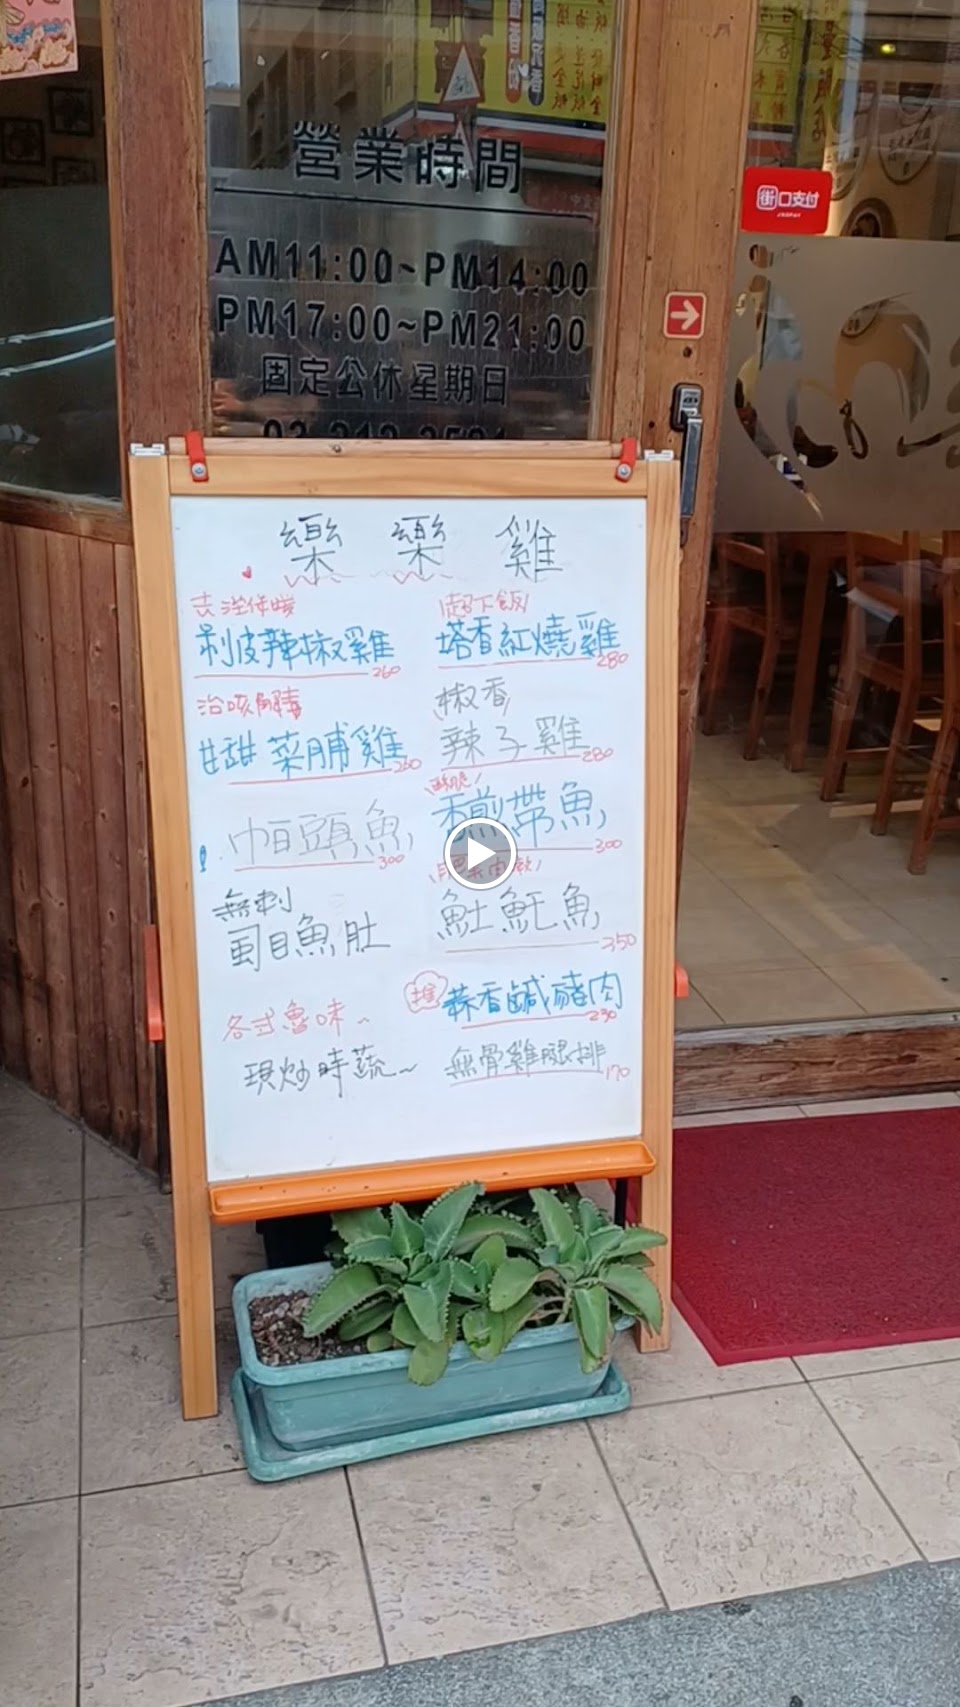 營業時間
AM11:00~PM14:00
PM17:00~PM21:00
固定公休星期日
街口支付
JKOPAY
樂樂雞
剝皮辣椒雞 260
治咳解毒
甘甜菜脯雞 260
帕頭魚 300
無刺
虱目魚肚
各式魯味~
現炒時蔬~
超下飯!
塔香紅燒雞 280
椒香
辣子雞 280
酥脆!
香煎帶魚 300
魚土魠魚 350
推
蒜香鹹豬肉 230
無骨雞腿排 170